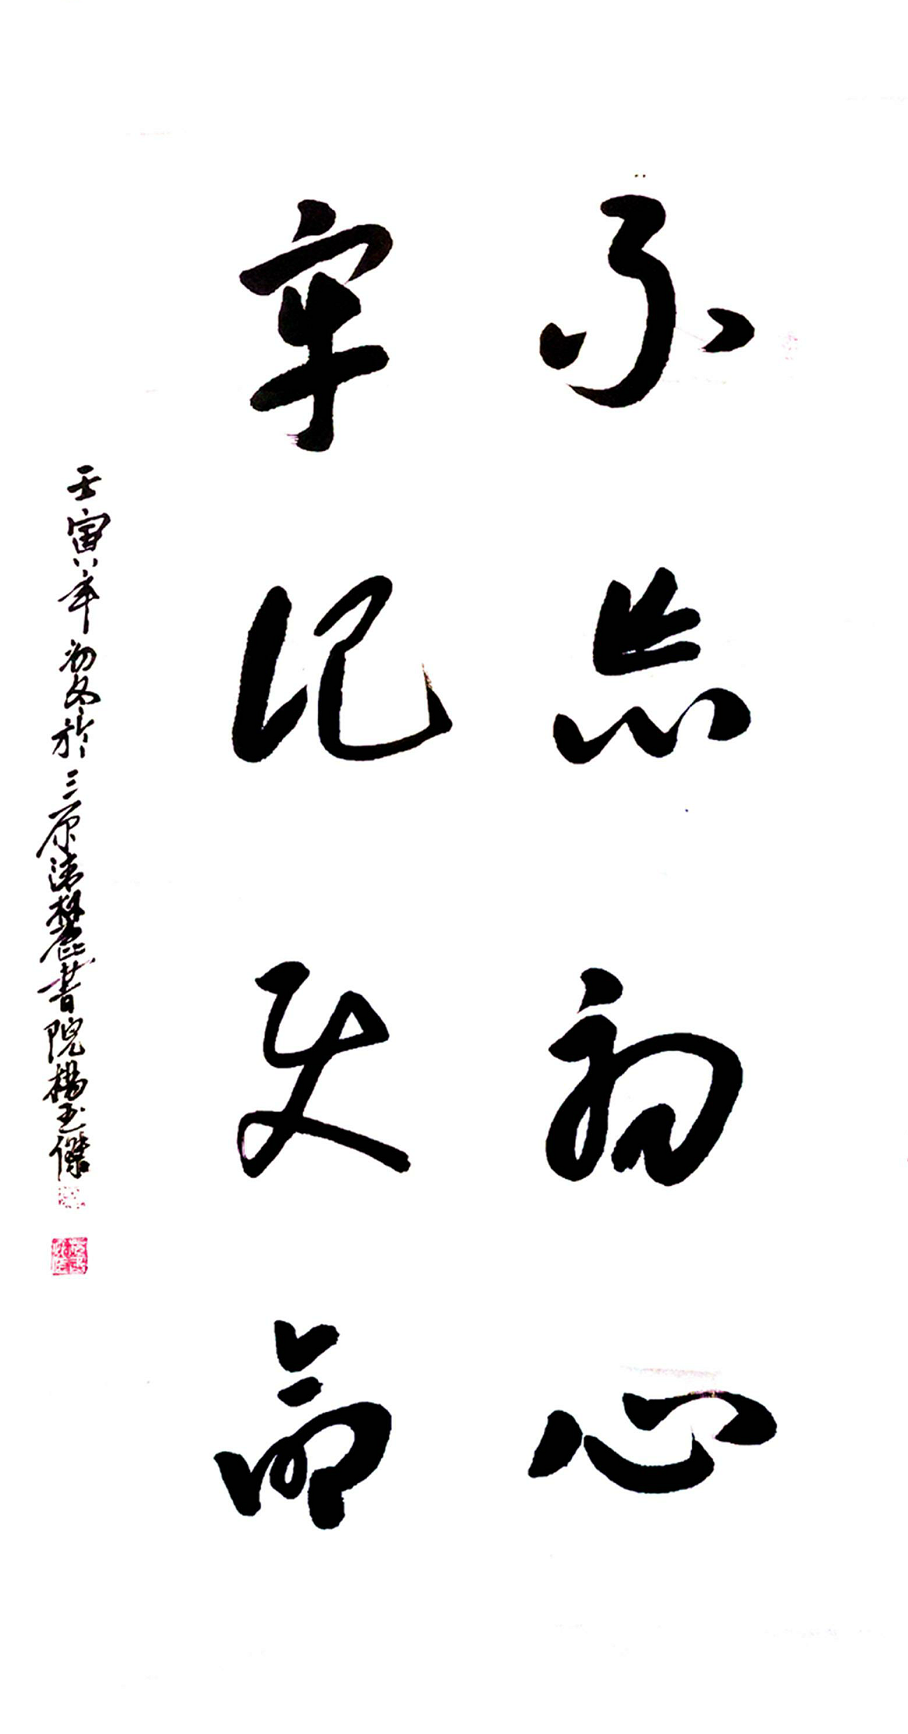 不忘初心
牢记使命
壬寅年初冬於三原清麓書院楊玉傑